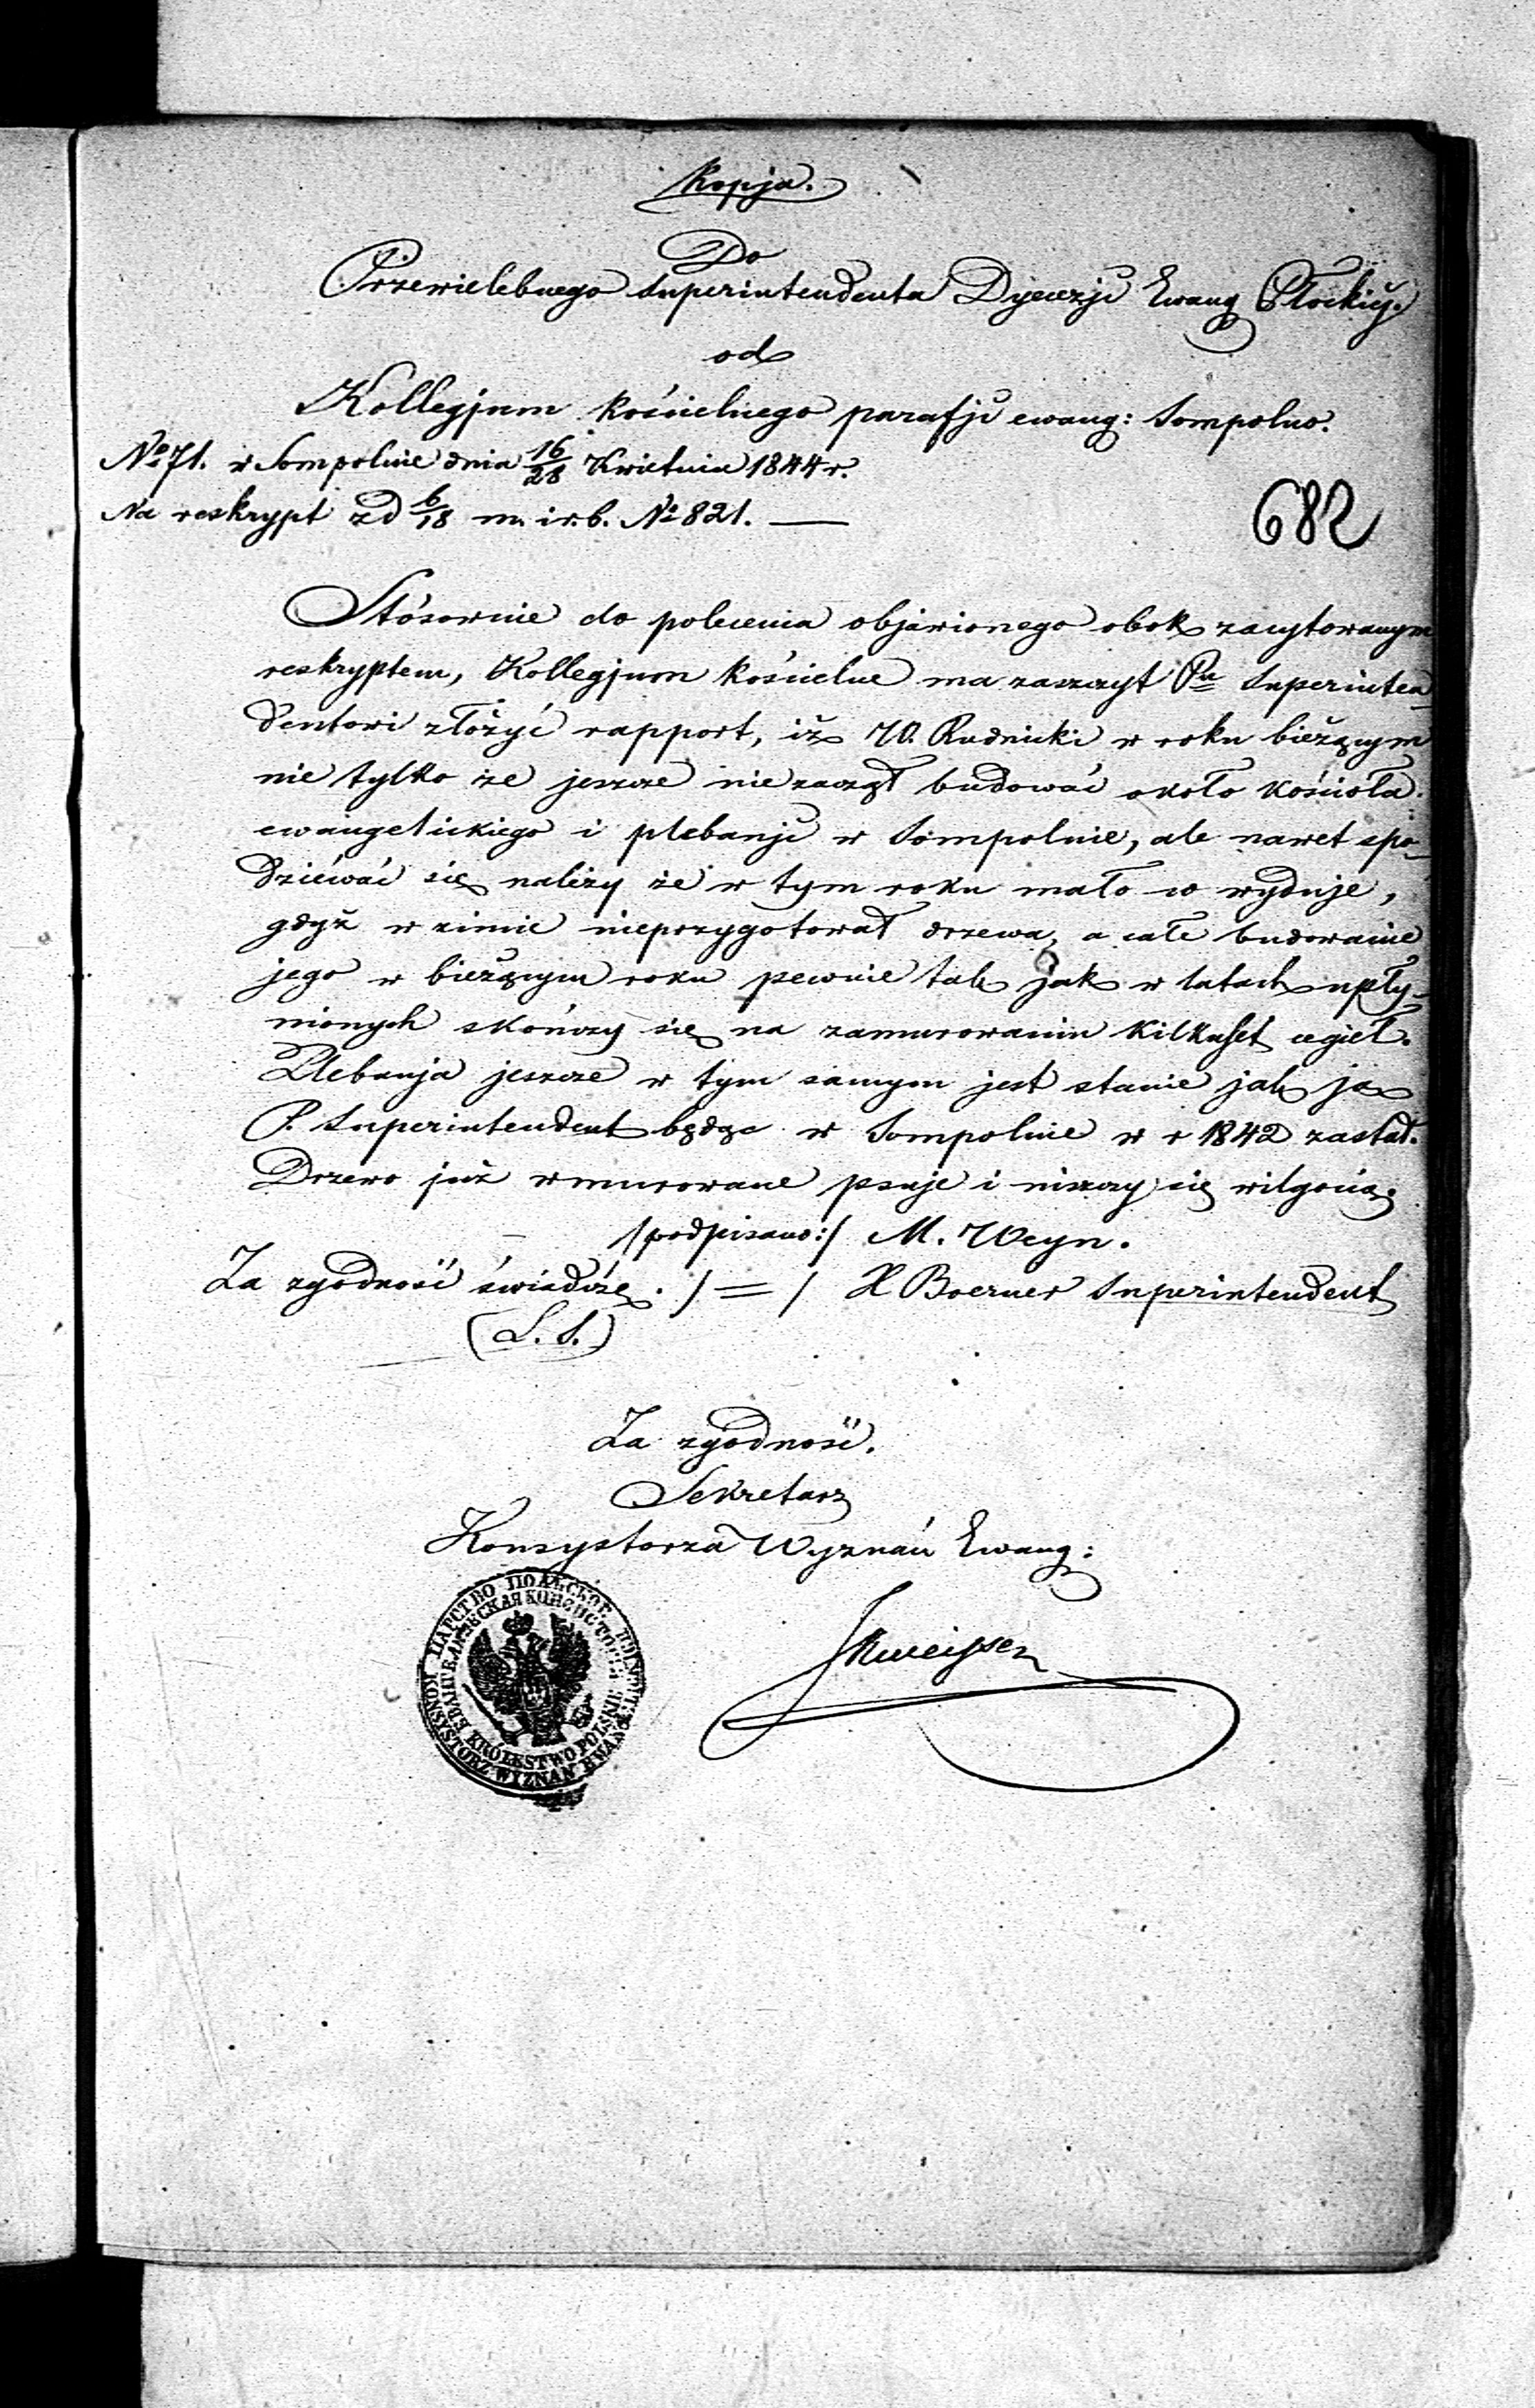 Kopja.
Do
Przewielebnego Superintendenta Dyecezji Ewang Płockiéj.
od
Kollegjum kościelnego parafji ewang: Sompolno.
No 71. w Sompolnie dnia 16/28 Kwietnia 1844 r.
Na reskrypt z d 6/18 m. i r. b. No 821. —
682
Stósownie do polecenia objawionego obok zacytowanym
reskryptem, Kollegjum kościelne ma zaszczyt Pu Superinten-
dentowi złożyć rapport, iż W. Rudnicki w roku bieżącym
nie tylko że jeszcze nie zaczął budować około kościoła
ewangelickiego i plebanji w Sompolnie, ale nawet spo-
dziéwać się należy że w tym roku mało co wyduje,
gdyż w zimie nieprzygotował drzewa, a całe budowanie
jego w bieżącym roku pewnie tak jak w latach upły-
nionych skończy się na zamurowaniu kilkuset cegieł.
Plebanja jeszcze w tym samym jest stanie jak ją
P. Superintendent będąc w Sompolnie w r 1842 zastał.
Drzewo już wmurowane psuje i niszczy się wilgocią.
/podpisano:/ M. Weyn.
Za zgodność świadczę. / = / X Boerner Superintendent
(L. S.)
Za zgodność.
Sekretarz
Konsystorza Wyznań Ewang:
ЦАРСТВО ПОЛЬСКОЕ
ЕВАНГЕЛИЧЕСКАЯ КОНСИСТОРІЯ
KRÓLESTWO POLSKIE
KONSYSTORZ WYZNAŃ EWANGELICKICH